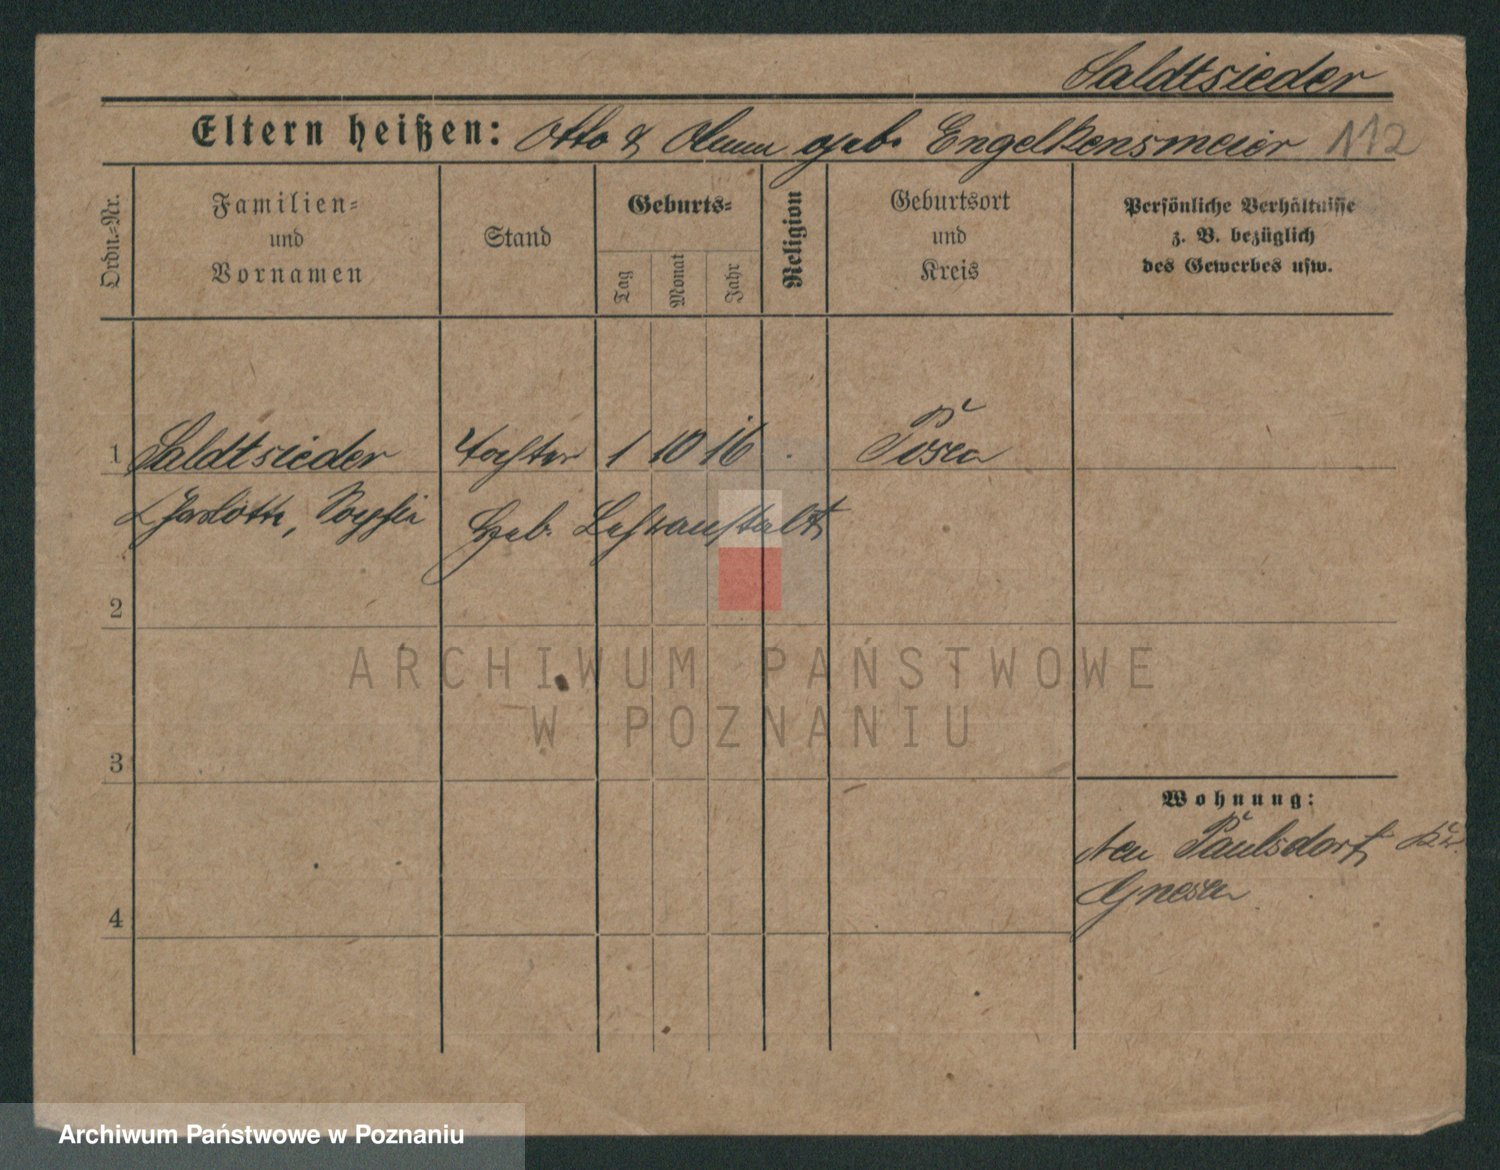 Saldtsieder
Eltern heißen: Otto & Anna geb. Engelkensmeier 112
Ordn.-Nr.
Familien-
und
Vornamen
Stand
Geburts-
Tag
Monat
Jahr
Religion
Geburtsort
und
Kreis
Persönliche Verhältnisse
z. B. bezüglich
des Gewerbes usw.
1 Saldtsieder Tochter 1 10 16 Posen
Charlotte, Sophie Heb. Lehranstalt
2
3
4
Wohnung:
Neu Paulsdorf Kr.
Gnesen
ARCHIWUM PAŃSTWOWE
W POZNANIU
Archiwum Państwowe w Poznaniu